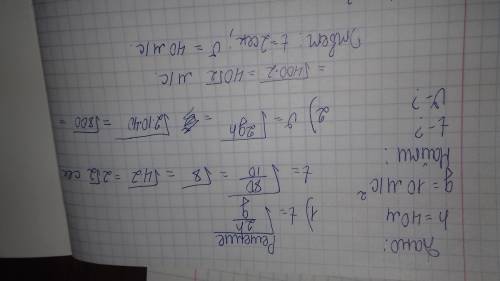 Дано:
h = 40м
g = 10 м/с²
Найти:
t - ?
V - ?
Решение
1) t = √2h/g
t = √80/10 = √8 = √4·2 = 2√2 сек
2) υ = √2gh = √2·10·40 = √800 =
= √400·2 = 40√2 м/с.
Ответ: t = 2сек; υ = 40 м/с.